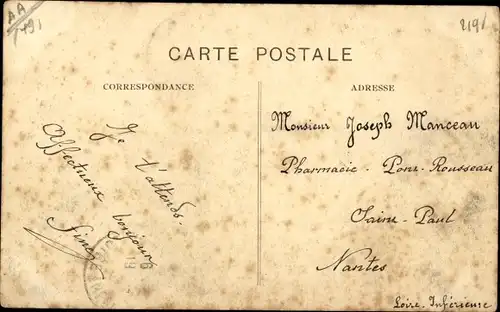 AA
191
219/
CARTE POSTALE
CORRESPONDANCE
Je t'attends.
Affectueux bonjour
ADRESSE
Monsieur Joseph Manceau
Pharmacie - Pont-Rousseau
Saint-Paul
Nantes
Loire-Inférieure